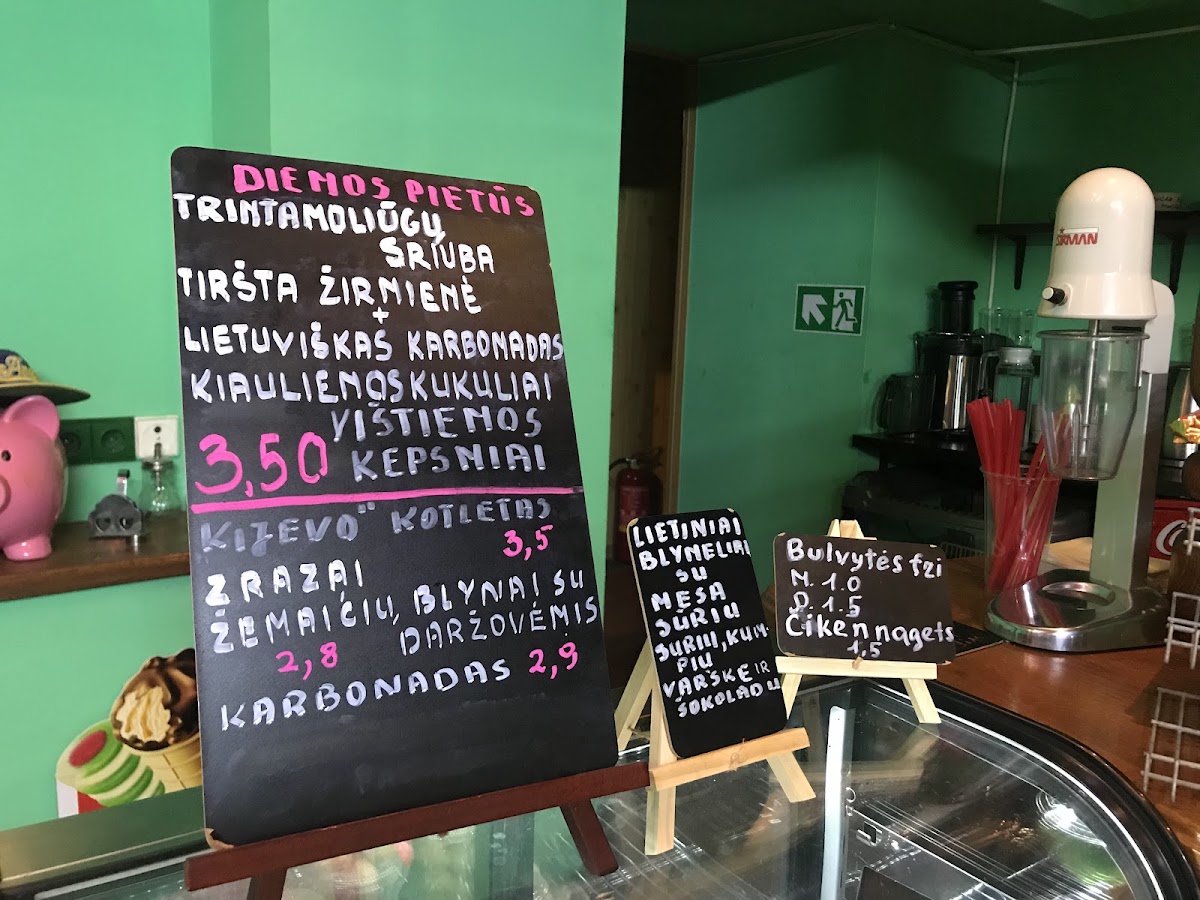 DIENOS PIETŪS
TRINTAMOLIŪGŲ
SRIUBA
TIRŠTA ŽIRNIENĖ
+
LIETUVIŠKAS KARBONADAS
KIAULIENOS KUKULIAI
VIŠTIENOS
3,50 KEPSNIAI
KIJEVO" KOTLETAS
3,5
ZRAZAI
ŽEMAIČIŲ, BLYNAI SU
DARŽOVĖMIS
2,8
KARBONADAS 2,9
LIETINIAI
BLYNELIAI
SU
MĖSA
SŪRIU
SŪRIU, KUM-
PIU
VARŠKE IR
ŠOKOLADU
Bulvytės fri
M. 1.0
D. 1.5
Čiken nagets
1,5
SIRMAN